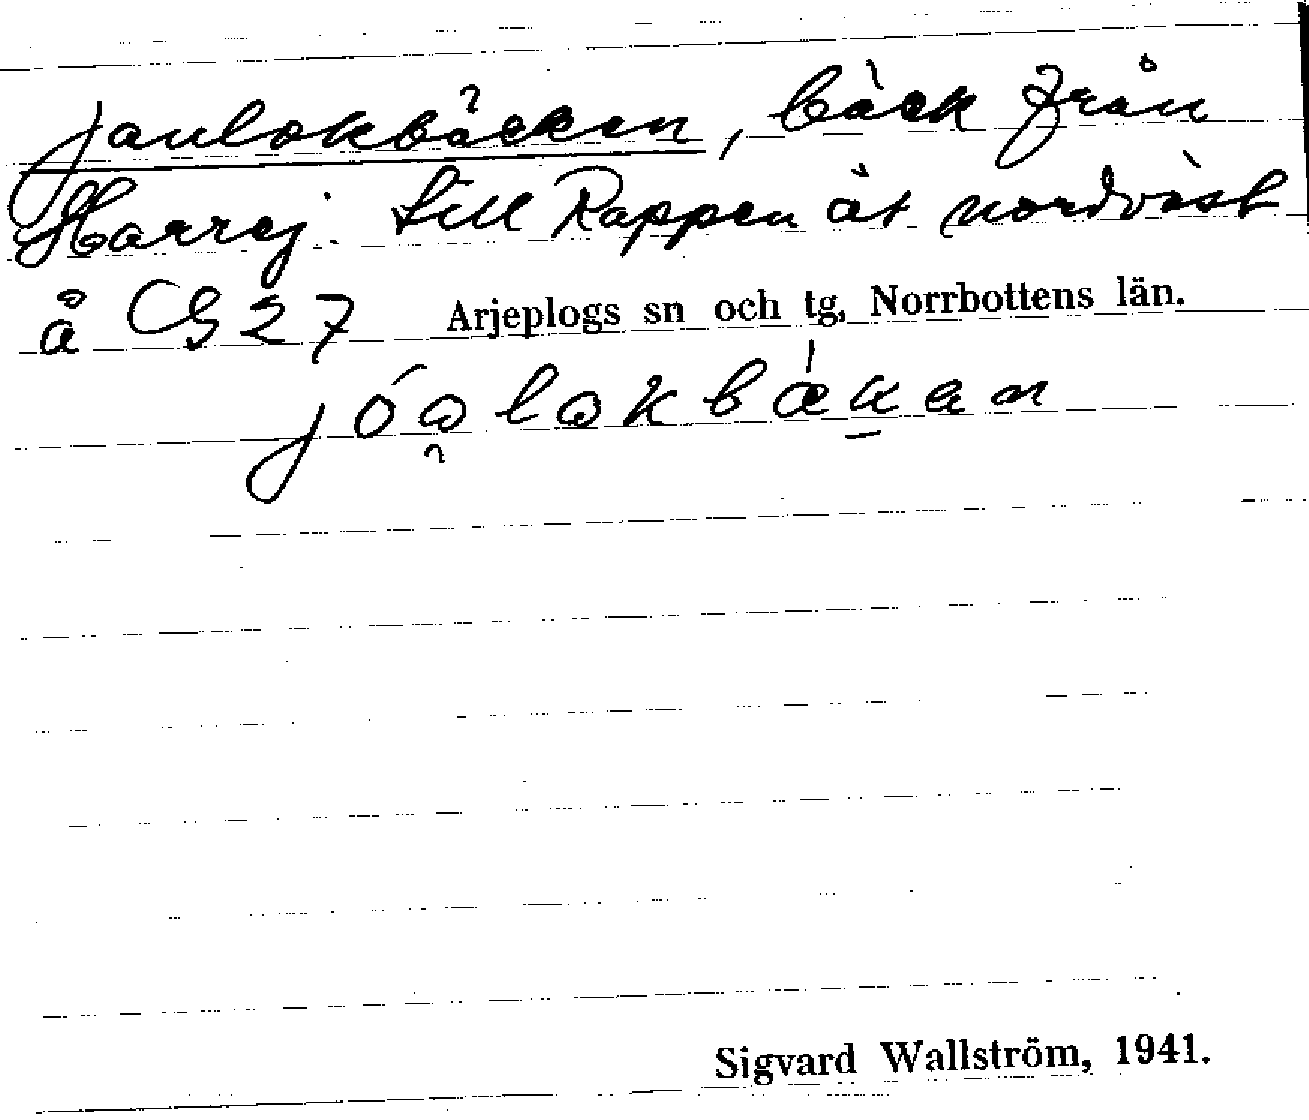 Jaulokbäcken, bäck från
Harrej. till Rappen åt nordväst
å CG 27 Arjeplogs sn och tg, Norrbottens län.
Sigvard Wallström, 1941.